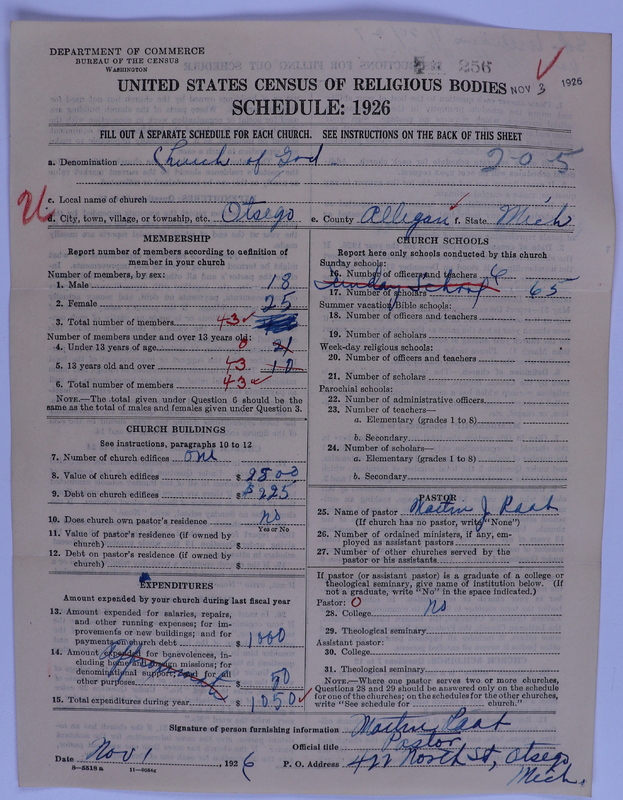 DEPARTMENT OF COMMERCE
BUREAU OF THE CENSUS
WASHINGTON
256
UNITED STATES CENSUS OF RELIGIOUS BODIES NOV 3 1926
SCHEDULE: 1926
FILL OUT A SEPARATE SCHEDULE FOR EACH CHURCH. SEE INSTRUCTIONS ON THE BACK OF THIS SHEET
a. Denomination Church of God 205
c. Local name of church
d. City, town, village, or township, etc. Otsego e. County Allegan f. State Mich
MEMBERSHIP
Report number of members according to definition of
member in your church
Number of members, by sex:
1. Male 18
2. Female 25
3. Total number of members 43
Number of members under and over 13 years old:
4. Under 13 years of age 0 21
5. 13 years old and over 43 10
6. Total number of members 43
NOTE.—The total given under Question 6 should be the
same as the total of males and females given under Question 3.
CHURCH BUILDINGS
See instructions, paragraphs 10 to 12
7. Number of church edifices one
8. Value of church edifices $ 2500
9. Debt on church edifices $ $225
10. Does church own pastor's residence No
Yes or No
11. Value of pastor's residence (if owned by
church) $
12. Debt on pastor's residence (if owned by
church) $
EXPENDITURES
Amount expended by your church during last fiscal year
13. Amount expended for salaries, repairs,
and other running expenses; for im-
provements or new buildings; and for
payments on church debt $ 1000
14. Amount expended for benevolences, in-
cluding home and foreign missions; for
denominational support; and for all
other purposes $ 50
15. Total expenditures during year $ 1050
CHURCH SCHOOLS
Report here only schools conducted by this church
Sunday schools:
16. Number of officers and teachers 6
Sunday School
17. Number of scholars 65
Summer vacation Bible schools:
18. Number of officers and teachers
19. Number of scholars
Week-day religious schools:
20. Number of officers and teachers
21. Number of scholars
Parochial schools:
22. Number of administrative officers
23. Number of teachers—
a. Elementary (grades 1 to 8)
b. Secondary
24. Number of scholars—
a. Elementary (grades 1 to 8)
b. Secondary
PASTOR
25. Name of pastor Martin J Raab
(If church has no pastor, write "None")
26. Number of ordained ministers, if any, em-
ployed as assistant pastors
27. Number of other churches served by the
pastor or his assistants
If pastor (or assistant pastor) is a graduate of a college or
theological seminary, give name of institution below. (If
not a graduate, write "No" in the space indicated.)
Pastor: 0
28. College No
29. Theological seminary
Assistant pastor:
30. College
31. Theological seminary
NOTE.—Where one pastor serves two or more churches,
Questions 28 and 29 should be answered only on the schedule
for one of the churches; on the schedules for the other churches,
write "See schedule for church."
Signature of person furnishing information Martin Raab
Official title Pastor
Date Nov 1 1926 P. O. Address 422 North St, Otsego
Mich.
8—5518 a